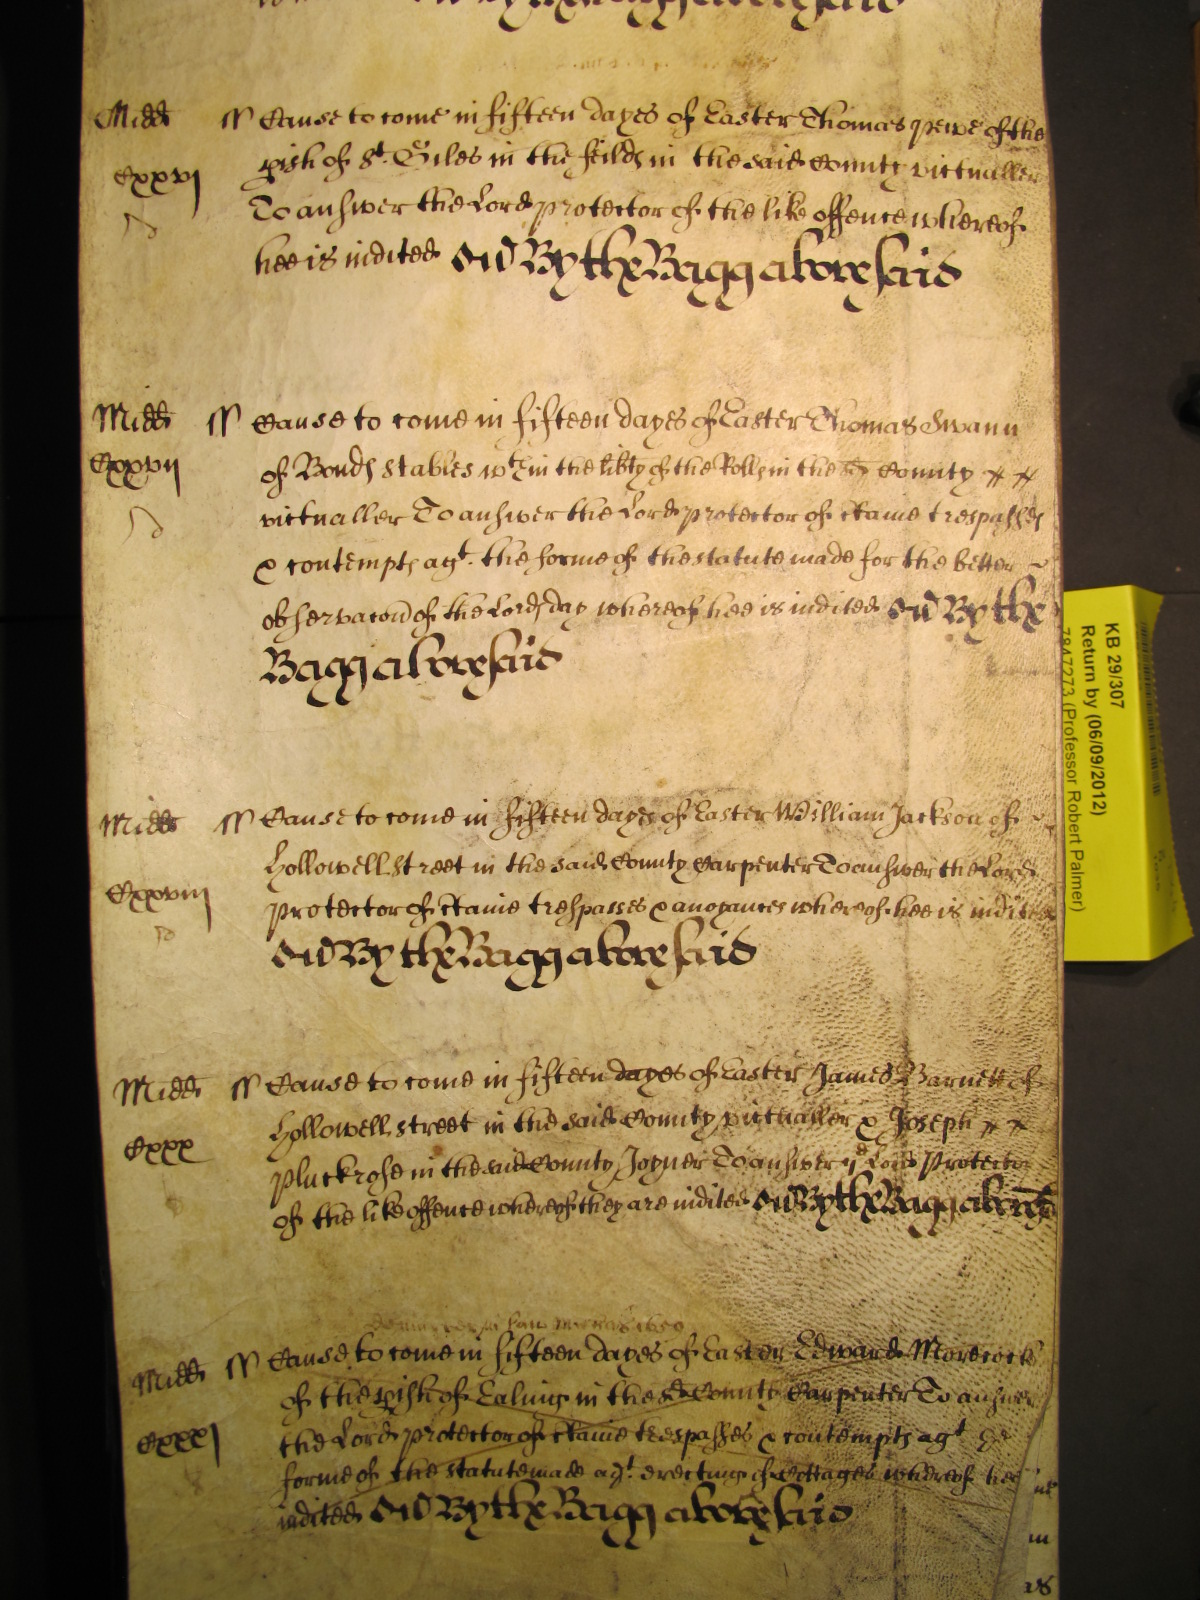 Midd ss Cause to come in fifteen dayes of Easter Thomas Pewe of the
Cxxvj pish of St. Giles in the feilds in the said County victualler
To answer the Lord protector of the like offence whereof
hee is indited By the Bagg abovesaid
Midd ss Cause to come in fifteen dayes of Easter Thomas Swann
Cxxvij of Bonds stables wthin the libty of the Rolls in the sd County
victualler To answer the Lord protector of ctaine trespasses
& contempts agt. the forme of the statute made for the better
observacon of the Lords day whereof hee is indited By the
Bagg abovesaid
Midd ss Cause to come in fifteen dayes of Easter William Jackson of
Cxxviij Hollowell Street in the said County Carpenter To answer the Lord
protector of ctaine trespasses & anoyances whereof hee is indited
By the Bagg abovesaid
Midd ss Cause to come in fifteen dayes of Easter James Barnett of
Cxxx Hollowell street in the said County victualler & Joseph
Pluckrose in the said County Joyner To answer ye Lord Protector
of the like offence whereof they are indited By the Bagg
1659
Midd ss Cause to come in fifteen dayes of Easter Edward Morecock
of the pish of Ealing in the sd County Carpenter To answer
Cxxxj the Lord protector of ctaine trespasses & contempts agt
forme of the statute made agt. erecting of Cottages whereof hee
indited By the Bagg abovesaid
KB 29/307
Return by (06/09/2012)
7847273 (Professor Robert Palmer)